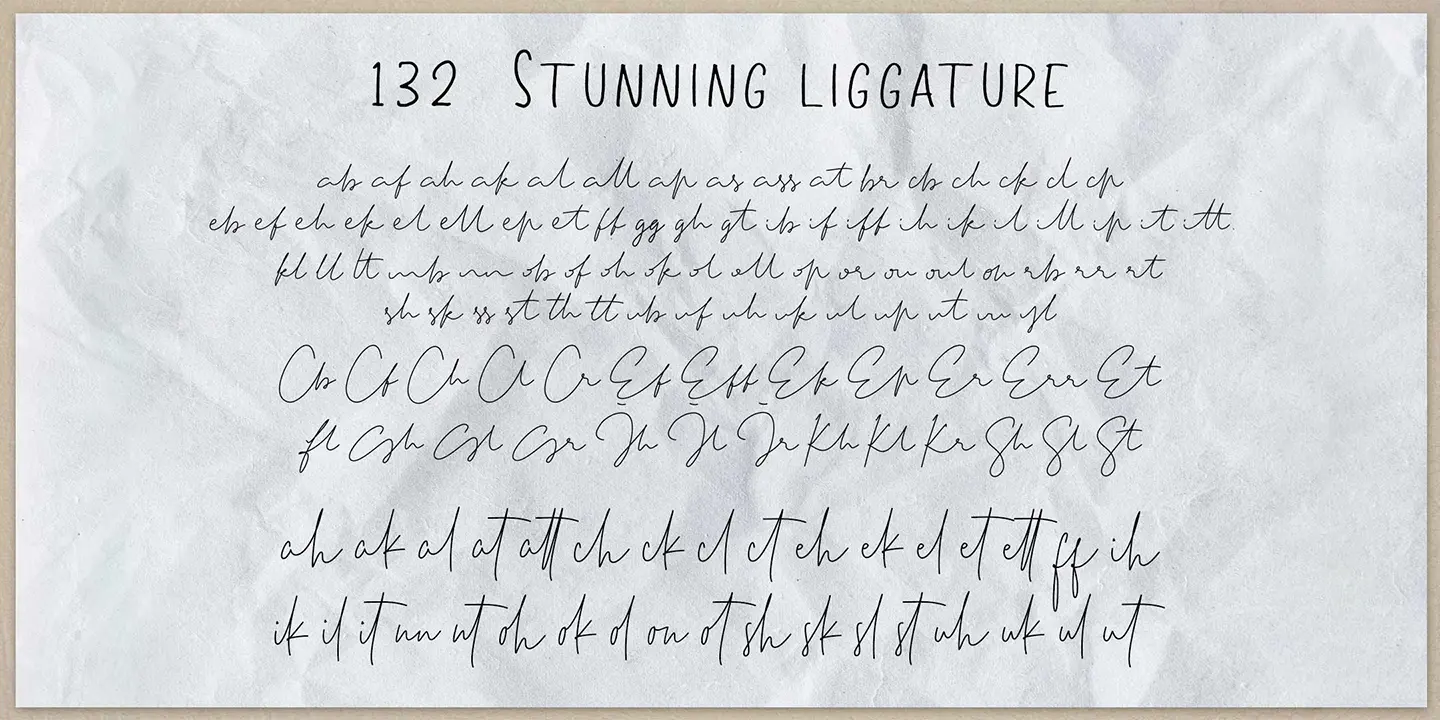 132 STUNNING LIGGATURE
ab af ah ak al all ap as ass at br cb ch ck cl cp
eb ef eh ek el ell ep et ff gg gh gt ib if iff ih ik il ill ip it itt
kl ll lt mb nn ob of oh ok ol oll op or ou oul on rb rr rt
sh sk ss st th tt ub uf uh uk ul up ut yl
Cb Cf Ch Cl Cr Ef Eff Ek Ep Er Err Et
fl Gh Gl Gr Jh Jl Jr Kh Kl Kr Sh Sl St
ah ak al at att ch ck cl ct eh ek el et ett ff ih
ik il it nn nt oh ok ol on ot sh sk sl st uh uk ul ut